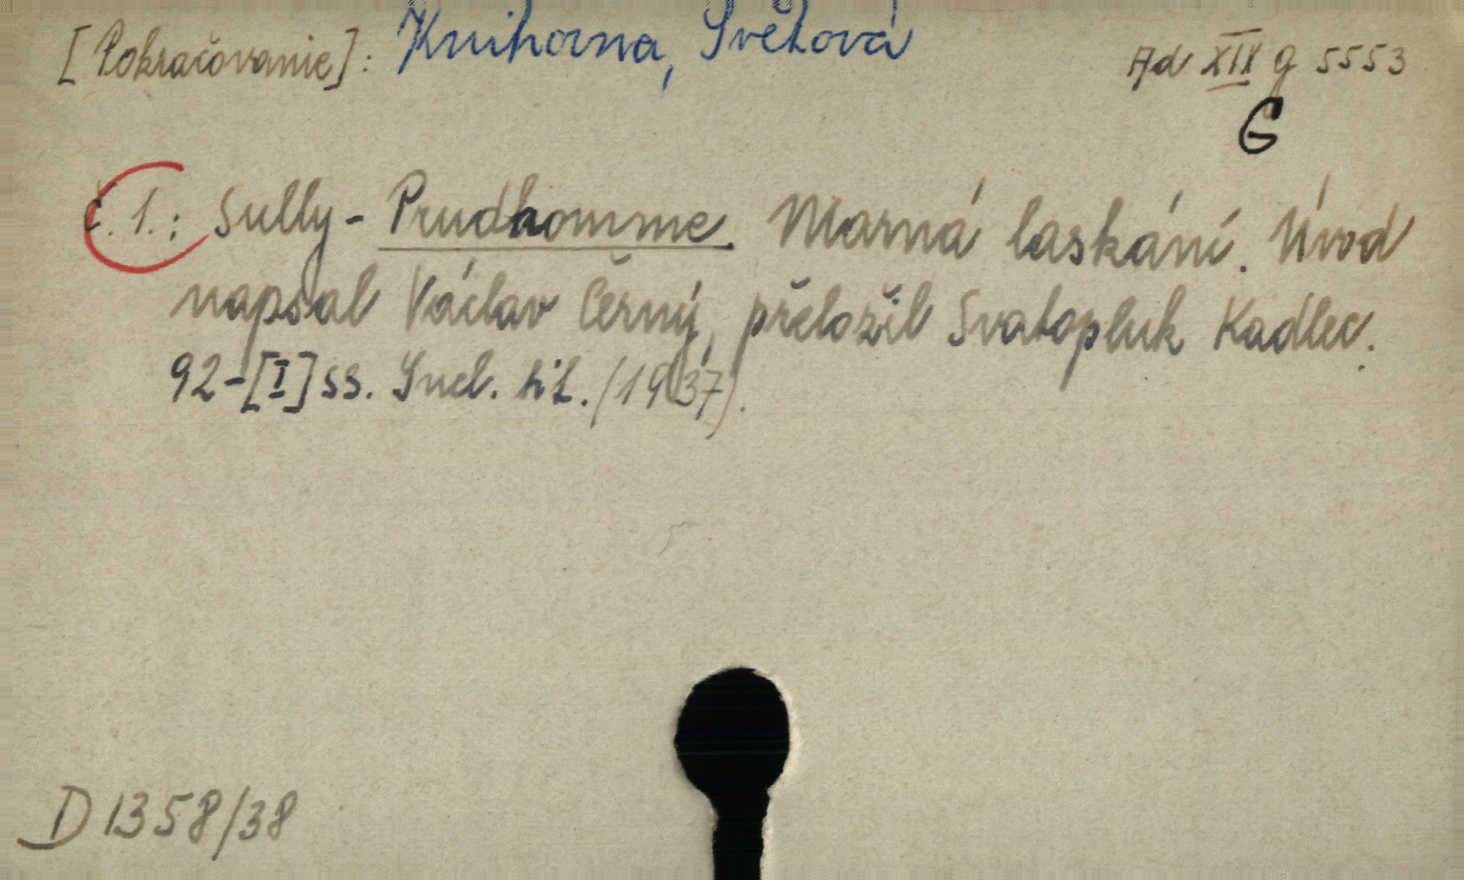 [Pokračovanie]: Knihovna, Světová Ad XIX g 5553
G
č. 1.: Sully-Prudhomme. Marná laskání. Úvod
napsal Václav Černý, přeložil Svatopluk Kadlec.
92-[I] ss. Incl. tit. (1937).
D 1358/38